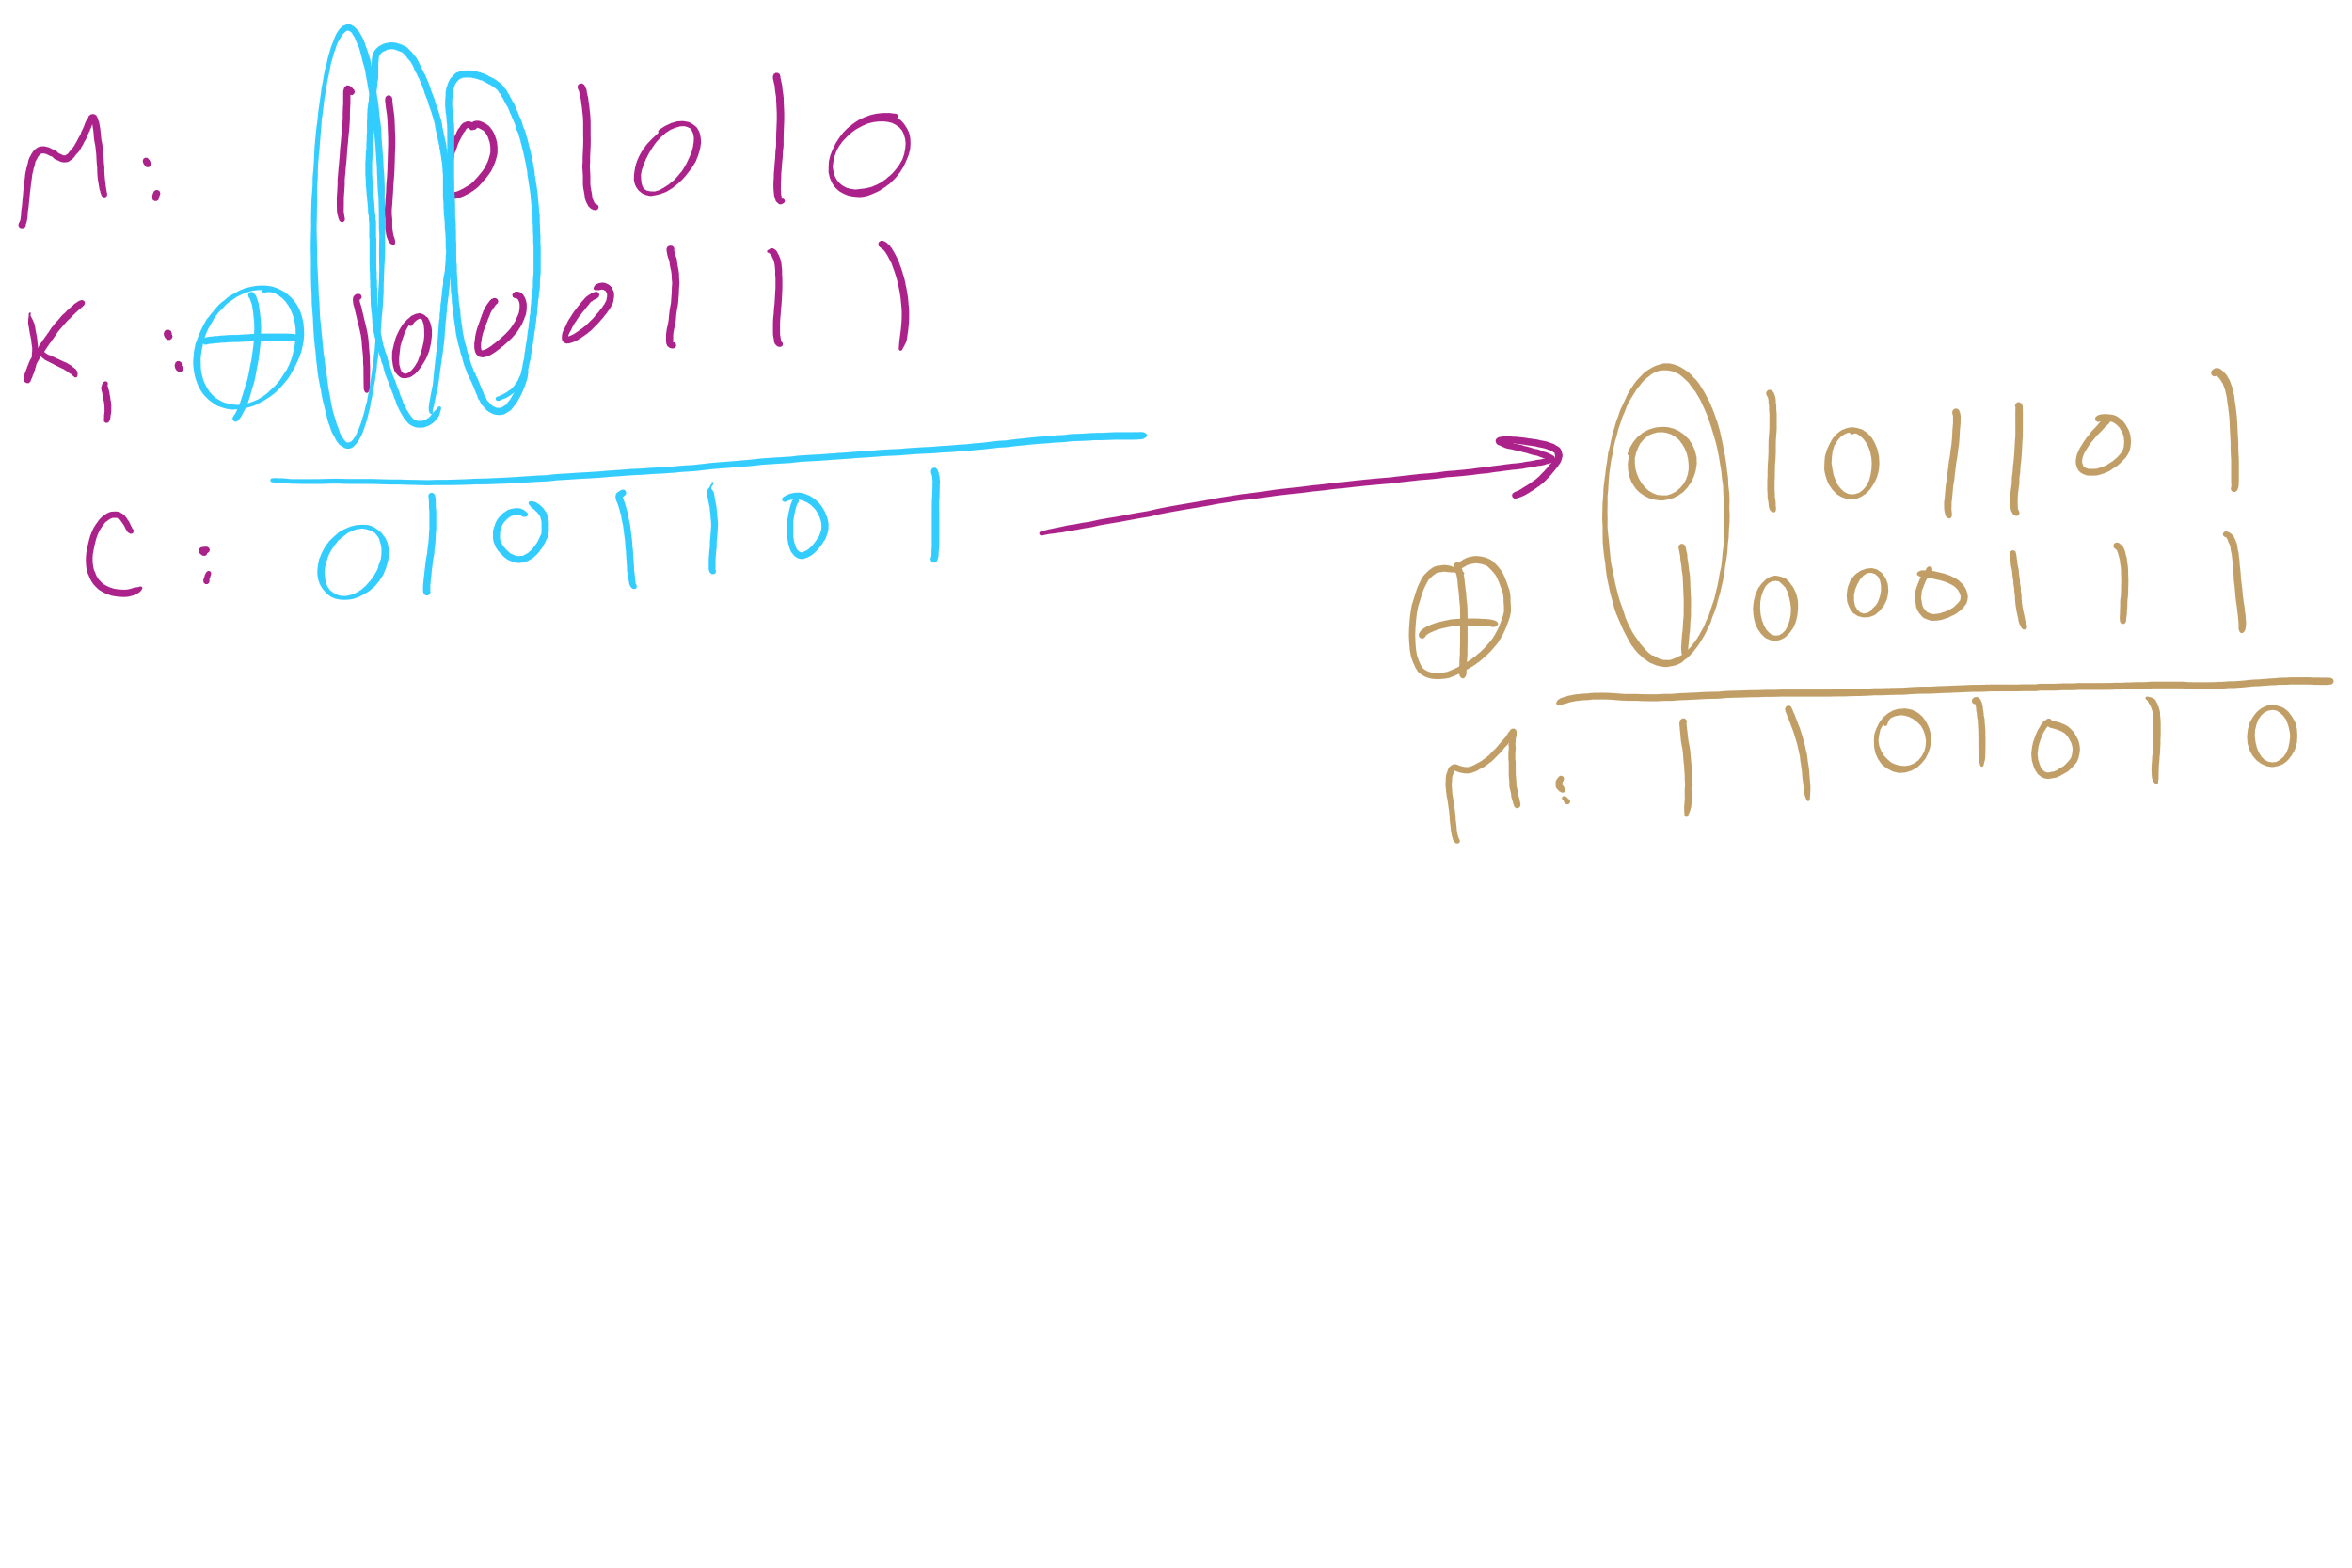 M: 1101010
K: ⊕ 1000111
C: 0101101
0101101
⊕ 1000111
M: 1101010